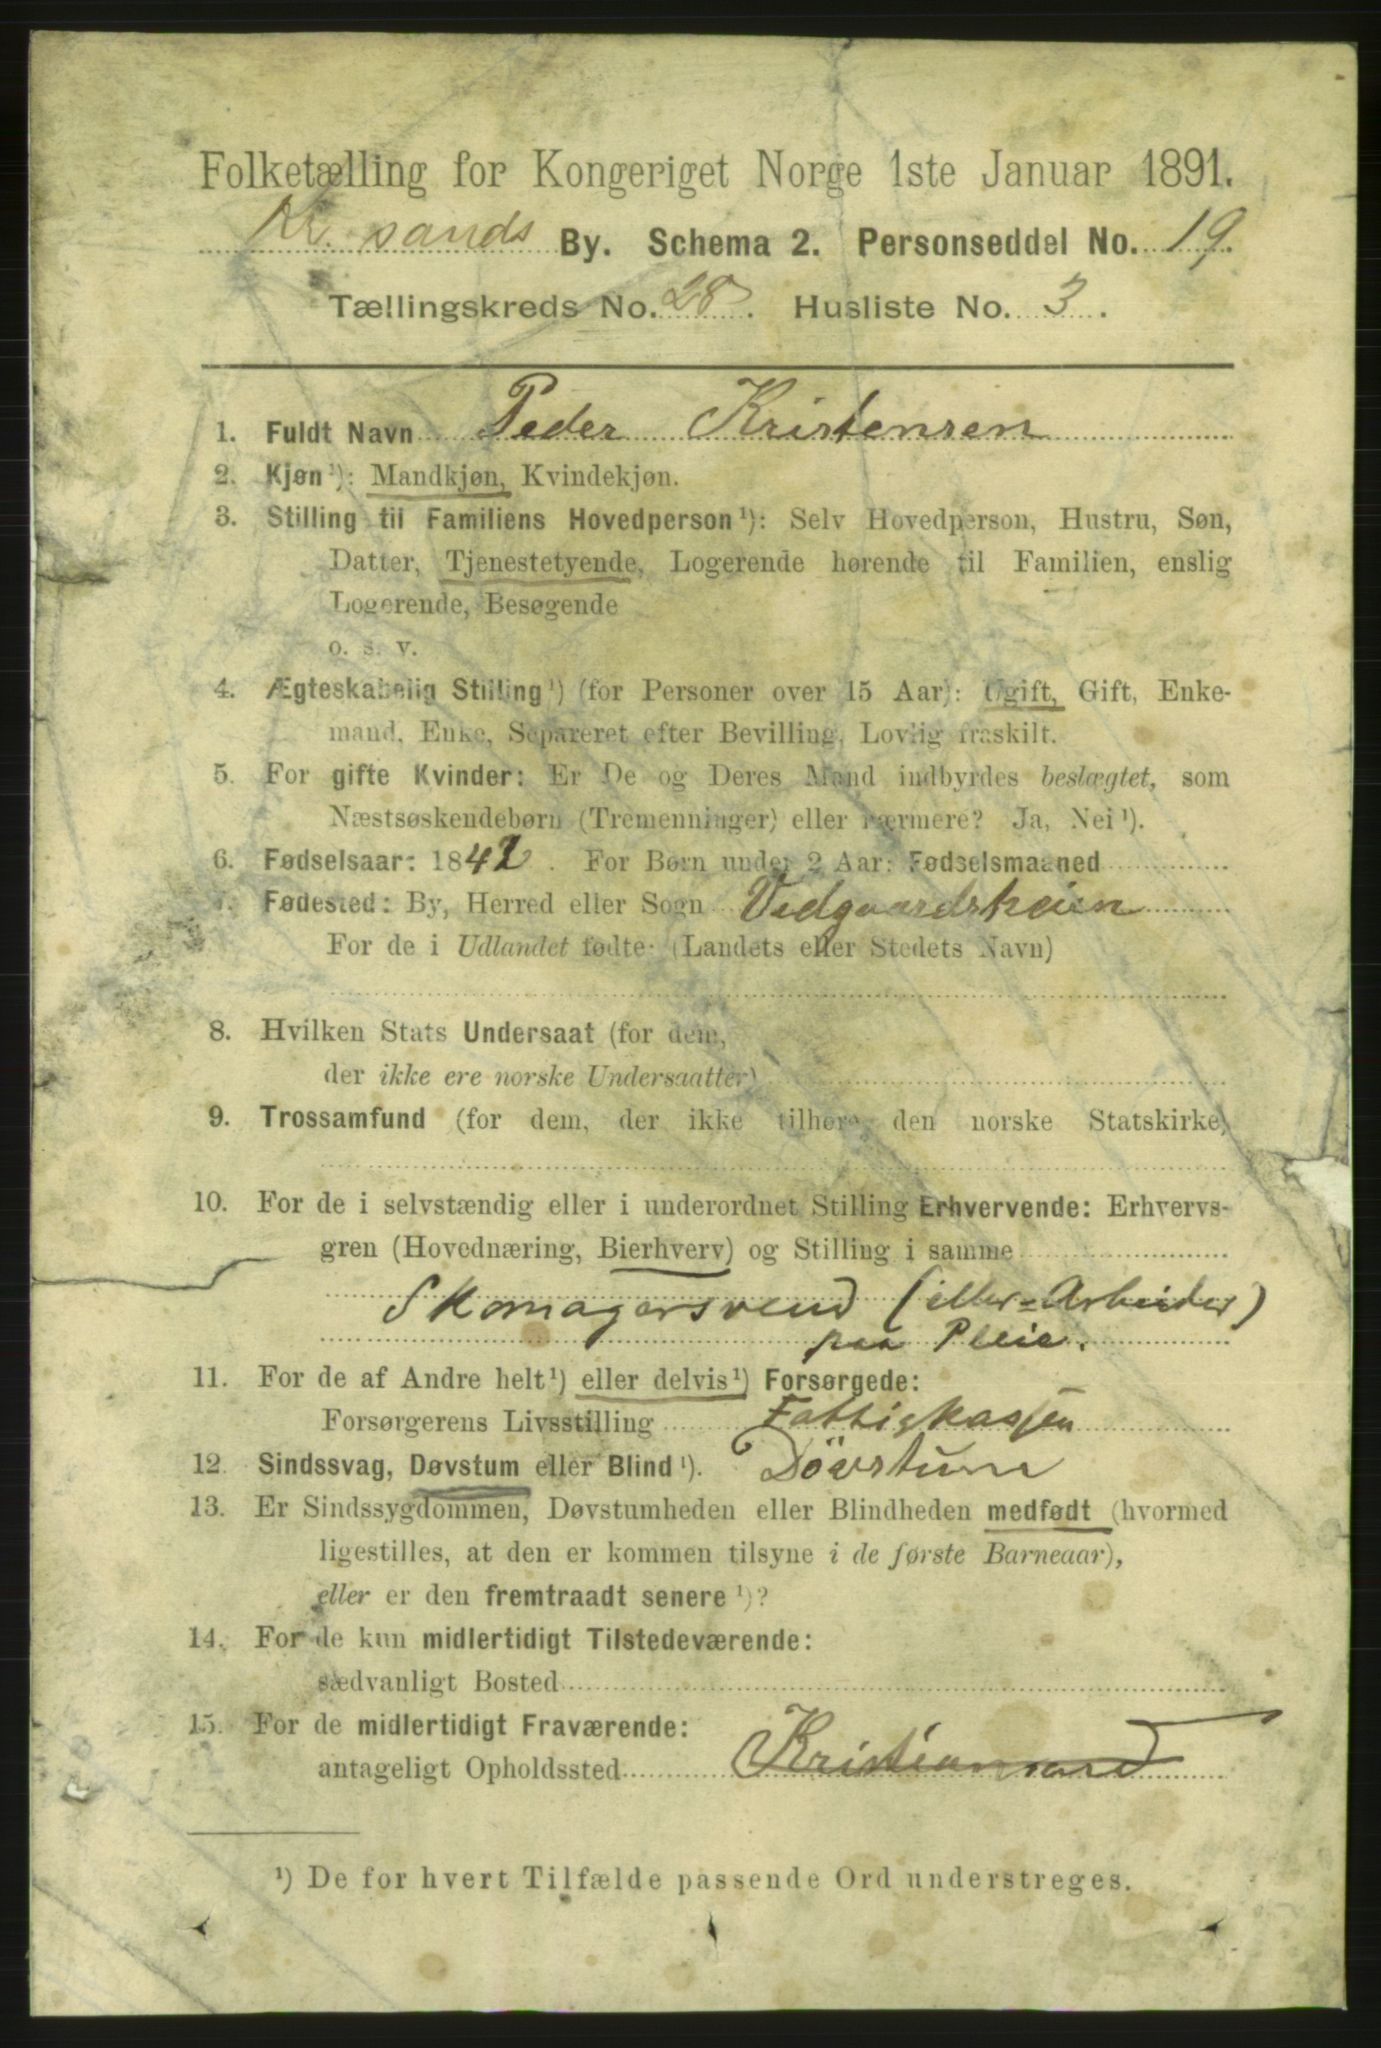 Folketælling for Kongeriget Norge 1ste Januar 1891.
Kr. sands By. Schema 2. Personseddel No. 19.
Tællingskreds No. 28. Husliste No. 3.
1. Fuldt Navn Peder Kristensen
2. Kjøn¹): Mandkjøn, Kvindekjøn.
3. Stilling til Familiens Hovedperson¹): Selv Hovedperson, Hustru, Søn,
Datter, Tjenestetyende, Logerende hørende til Familien, enslig
Logerende, Besøgende
o. s. v.
4. Ægteskabelig Stilling¹) (for Personer over 15 Aar): Ugift, Gift, Enke-
mand, Enke, Separeret efter Bevilling, Lovlig fraskilt.
5. For gifte Kvinder: Er De og Deres Mand indbyrdes beslægtet, som
Næstsøskendebørn (Tremenninger) eller nærmere? Ja, Nei¹).
6. Fødselsaar: 1842. For Børn under 2 Aar: Fødselsmaaned
7. Fødested: By, Herred eller Sogn Vedgaardsheien
For de i Udlandet fødte: (Landets eller Stedets Navn)
8. Hvilken Stats Undersaat (for dem,
der ikke ere norske Undersaatter)
9. Trossamfund (for dem, der ikke tilhøre den norske Statskirke)
10. For de i selvstændig eller i underordnet Stilling Erhvervende: Erhvervs-
gren (Hovednæring, Bierhverv) og Stilling i samme
Skomagersvend (eller-Arbeider)
paa Pleie.
11. For de af Andre helt¹) eller delvis¹) Forsørgede:
Forsørgerens Livsstilling Fattigkassen
12. Sindssvag, Døvstum eller Blind¹). Dövstum
13. Er Sindssygdommen, Døvstumheden eller Blindheden medfødt (hvormed
ligestilles, at den er kommen tilsyne i de første Barneaar),
eller er den fremtraadt senere¹)?
14. For de kun midlertidigt Tilstedeværende:
sædvanligt Bosted
15. For de midlertidigt Fraværende:
antageligt Opholdssted Kristiansand
¹) De for hvert Tilfælde passende Ord understreges.